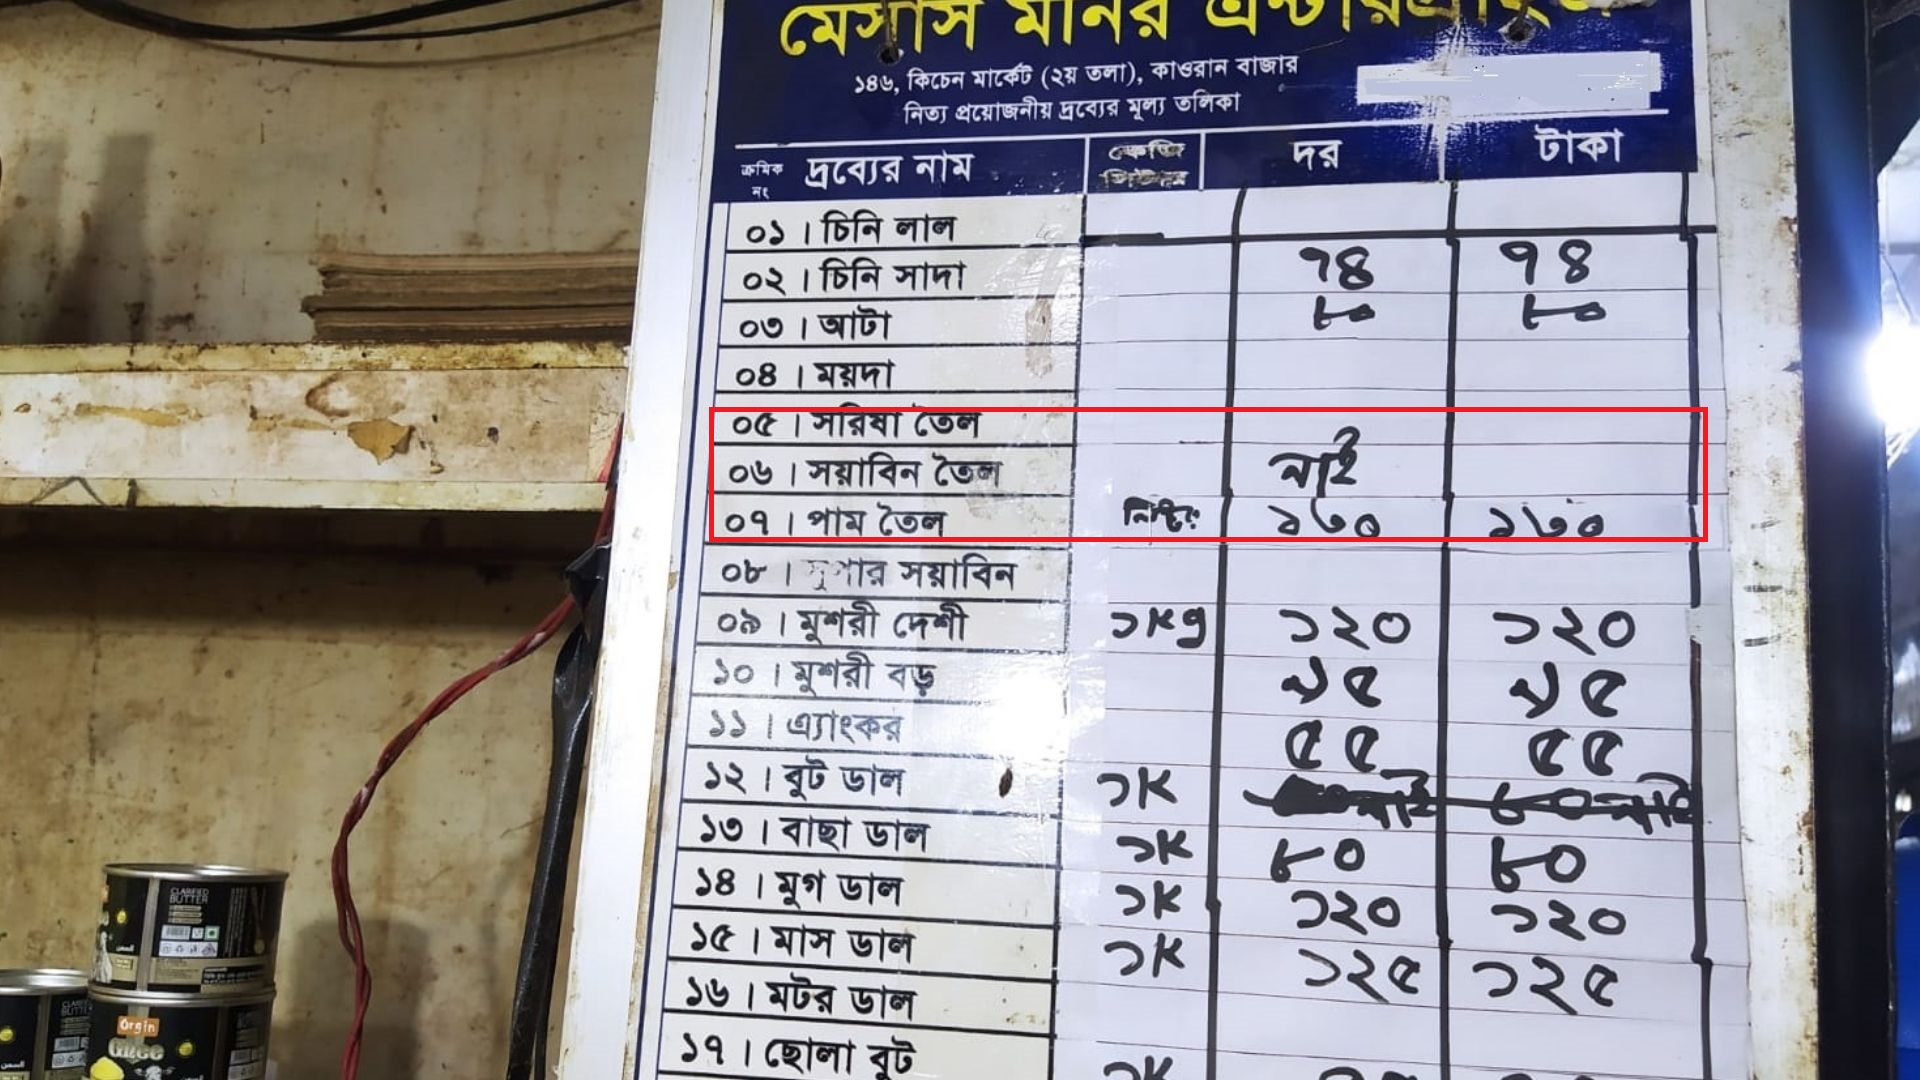 মেসার্স মনির এন্টারপ্রাইজ
১৪৬, কিচেন মার্কেট (২য় তলা), কাওরান বাজার
নিত্য প্রয়োজনীয় দ্রব্যের মূল্য তালিকা
ক্রমিক নং দ্রব্যের নাম কেজি লিটার দর টাকা
০১ । চিনি লাল
০২ । চিনি সাদা ৭৪ ৭৪
০৩ । আটা ৮০ ৮০
০৪ । ময়দা
০৫ । সরিষা তৈল
০৬ । সয়াবিন তৈল নাই
০৭ । পাম তৈল ১৩০ ১৩০
০৮ । সুপার সয়াবিন
০৯ । মুশরী দেশী ১Kg ১২০ ১২০
১০ । মুশরী বড় ৯৫ ৯৫
১১ । এ্যাংকর ৫৫ ৫৫
১২ । বুট ডাল ১K নাই ৮০ নাই
১৩ । বাছা ডাল ১K ৮০ ৮০
১৪ । মুগ ডাল ১K ১২০ ১২০
১৫ । মাস ডাল ১K ১২৫ ১২৫
১৬ । মটর ডাল
১৭ । ছোলা বুট ১K
CLARIFIED
BUTTER
Orgin
Ghee